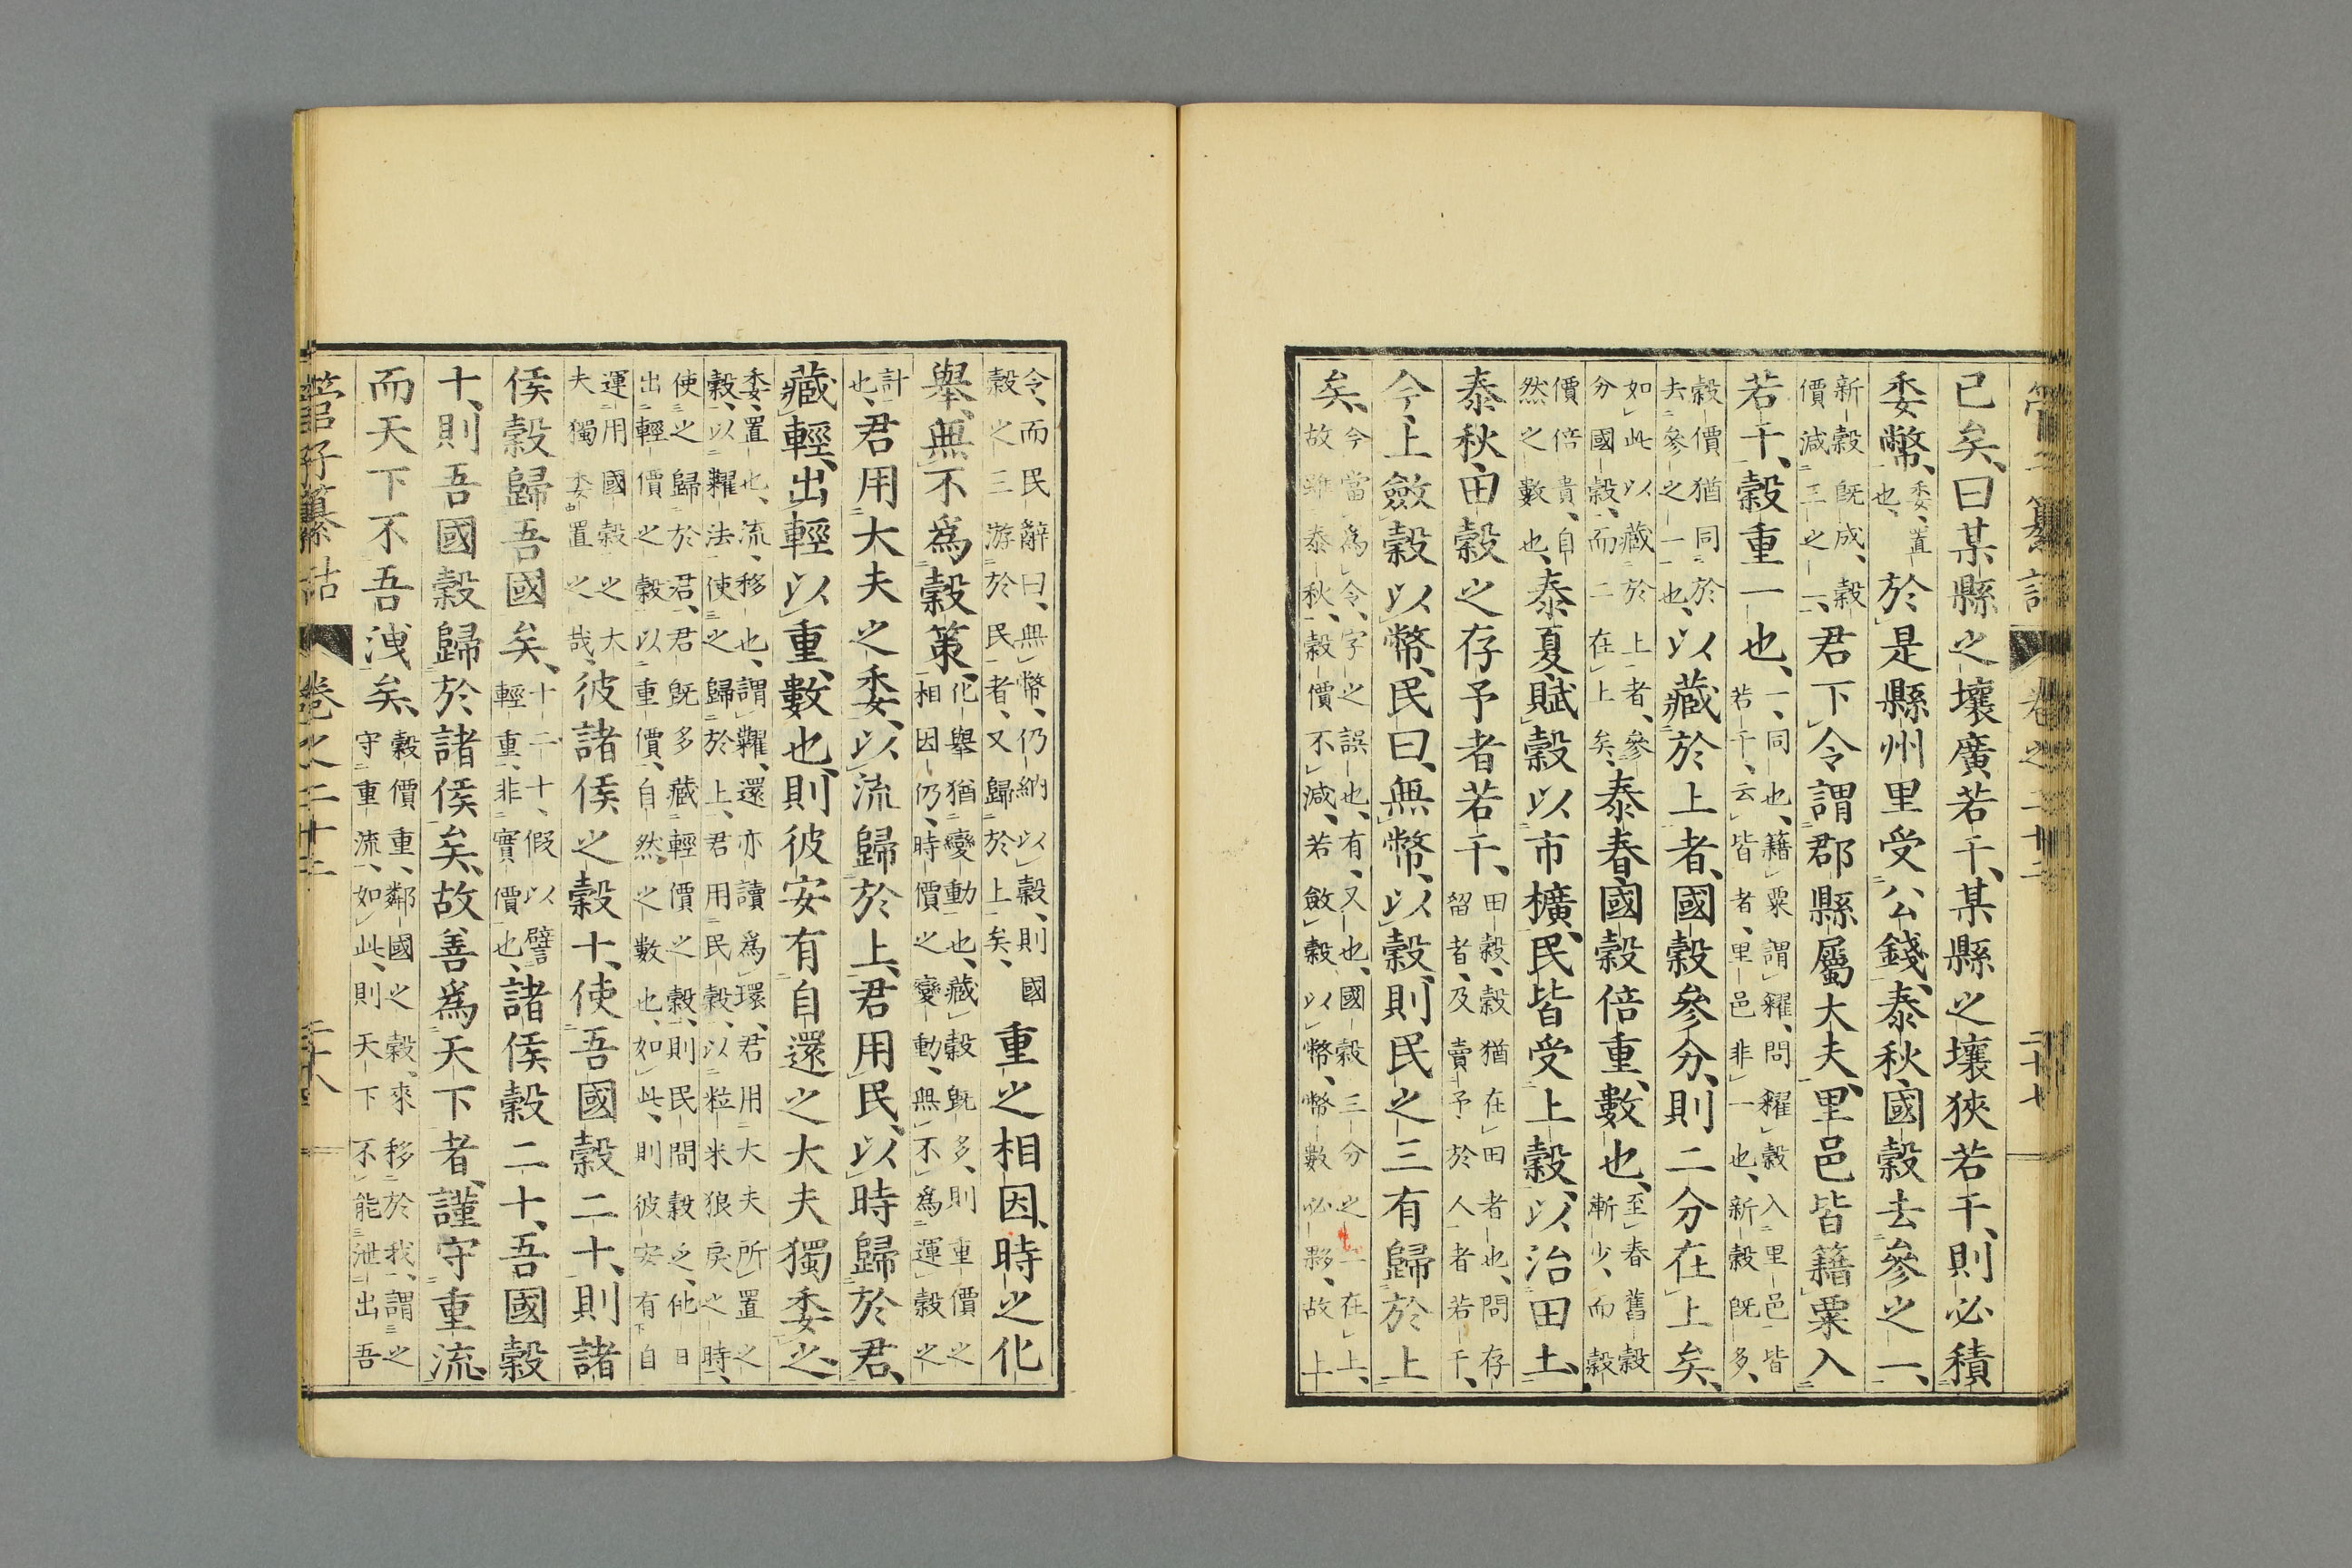 管子纂詁　卷之二十二　二十七
已矣、曰某縣之壤廣若干、某縣之壤狹若干、則必積
委幣、委、置也、於是縣州里受公錢、泰秋國穀去參之一、
新穀既成、穀價減三之一、君下令謂郡縣屬大夫、里邑皆籍粟入
若干、穀重一也、一、同也、籍粟謂糴、問糴穀入里邑皆若干、云皆者、里邑非一也、新穀既多、
穀價猶同於去參之一也、以藏於上者、國穀參分、則二分在上矣、
如此以藏於上者、參分國穀、而二在上矣、泰春國穀倍重、數也、至春舊穀漸少、而穀
價倍貴、自然之數也、泰夏賦穀以市櫎、民皆受上穀、以治田土、
泰秋、田穀之存予者若干、田穀、穀猶在田者也、問存留者、及賣予於人者若干、
今上斂穀以幣、民曰、無幣、以穀、則民之三有歸於上
矣、今當爲令、字之誤也、有、又也、國穀三分之二在上、故雖泰秋、穀價不減、若斂穀以幣、幣數必夥、故上
令、而民辭曰、無幣、仍納以穀、則國穀之三游於民者、又歸於上矣、重之相因、時之化
舉、無不爲穀策、化舉猶變動也、藏穀既多、則重價之相因仍、時價之變動、無不爲運穀之
計也、君用大夫之委、以流歸於上、君用民、以時歸於君、
藏輕、出輕以重、數也、則彼安有自還之大夫獨委之、
委、置也、流、移也、謂糶、還亦讀爲環、君用大夫所置之穀、以糶法使之歸於上、君用民穀、以粒米狼戾之時、
使之歸於君、君既多藏輕價之穀、則民間穀乏、他日出輕價之穀以重價、自然之數也、如此、則彼安有自
運用國穀之大夫獨委置之哉、彼諸侯之穀十、使吾國穀二十、則諸
侯穀歸吾國矣、十二十、假以譬輕重、非實價也、諸侯穀二十、吾國穀
十、則吾國穀歸於諸侯矣、故善爲天下者、謹守重流、
而天下不吾洩矣、穀價重、鄰國之穀、來移於我、謂之守重流、如此、則天下不能泄出吾
管子纂詁　卷之二十二　二十八